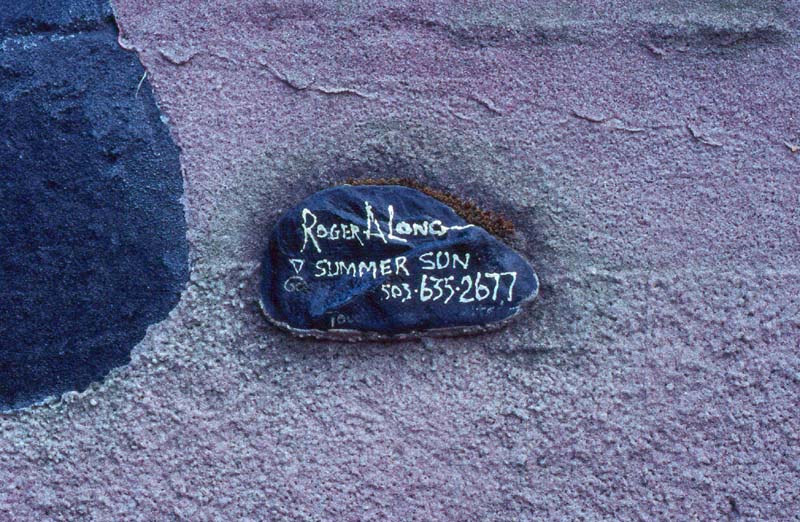 ROGER A LONG
SUMMER SUN
503·635·2677